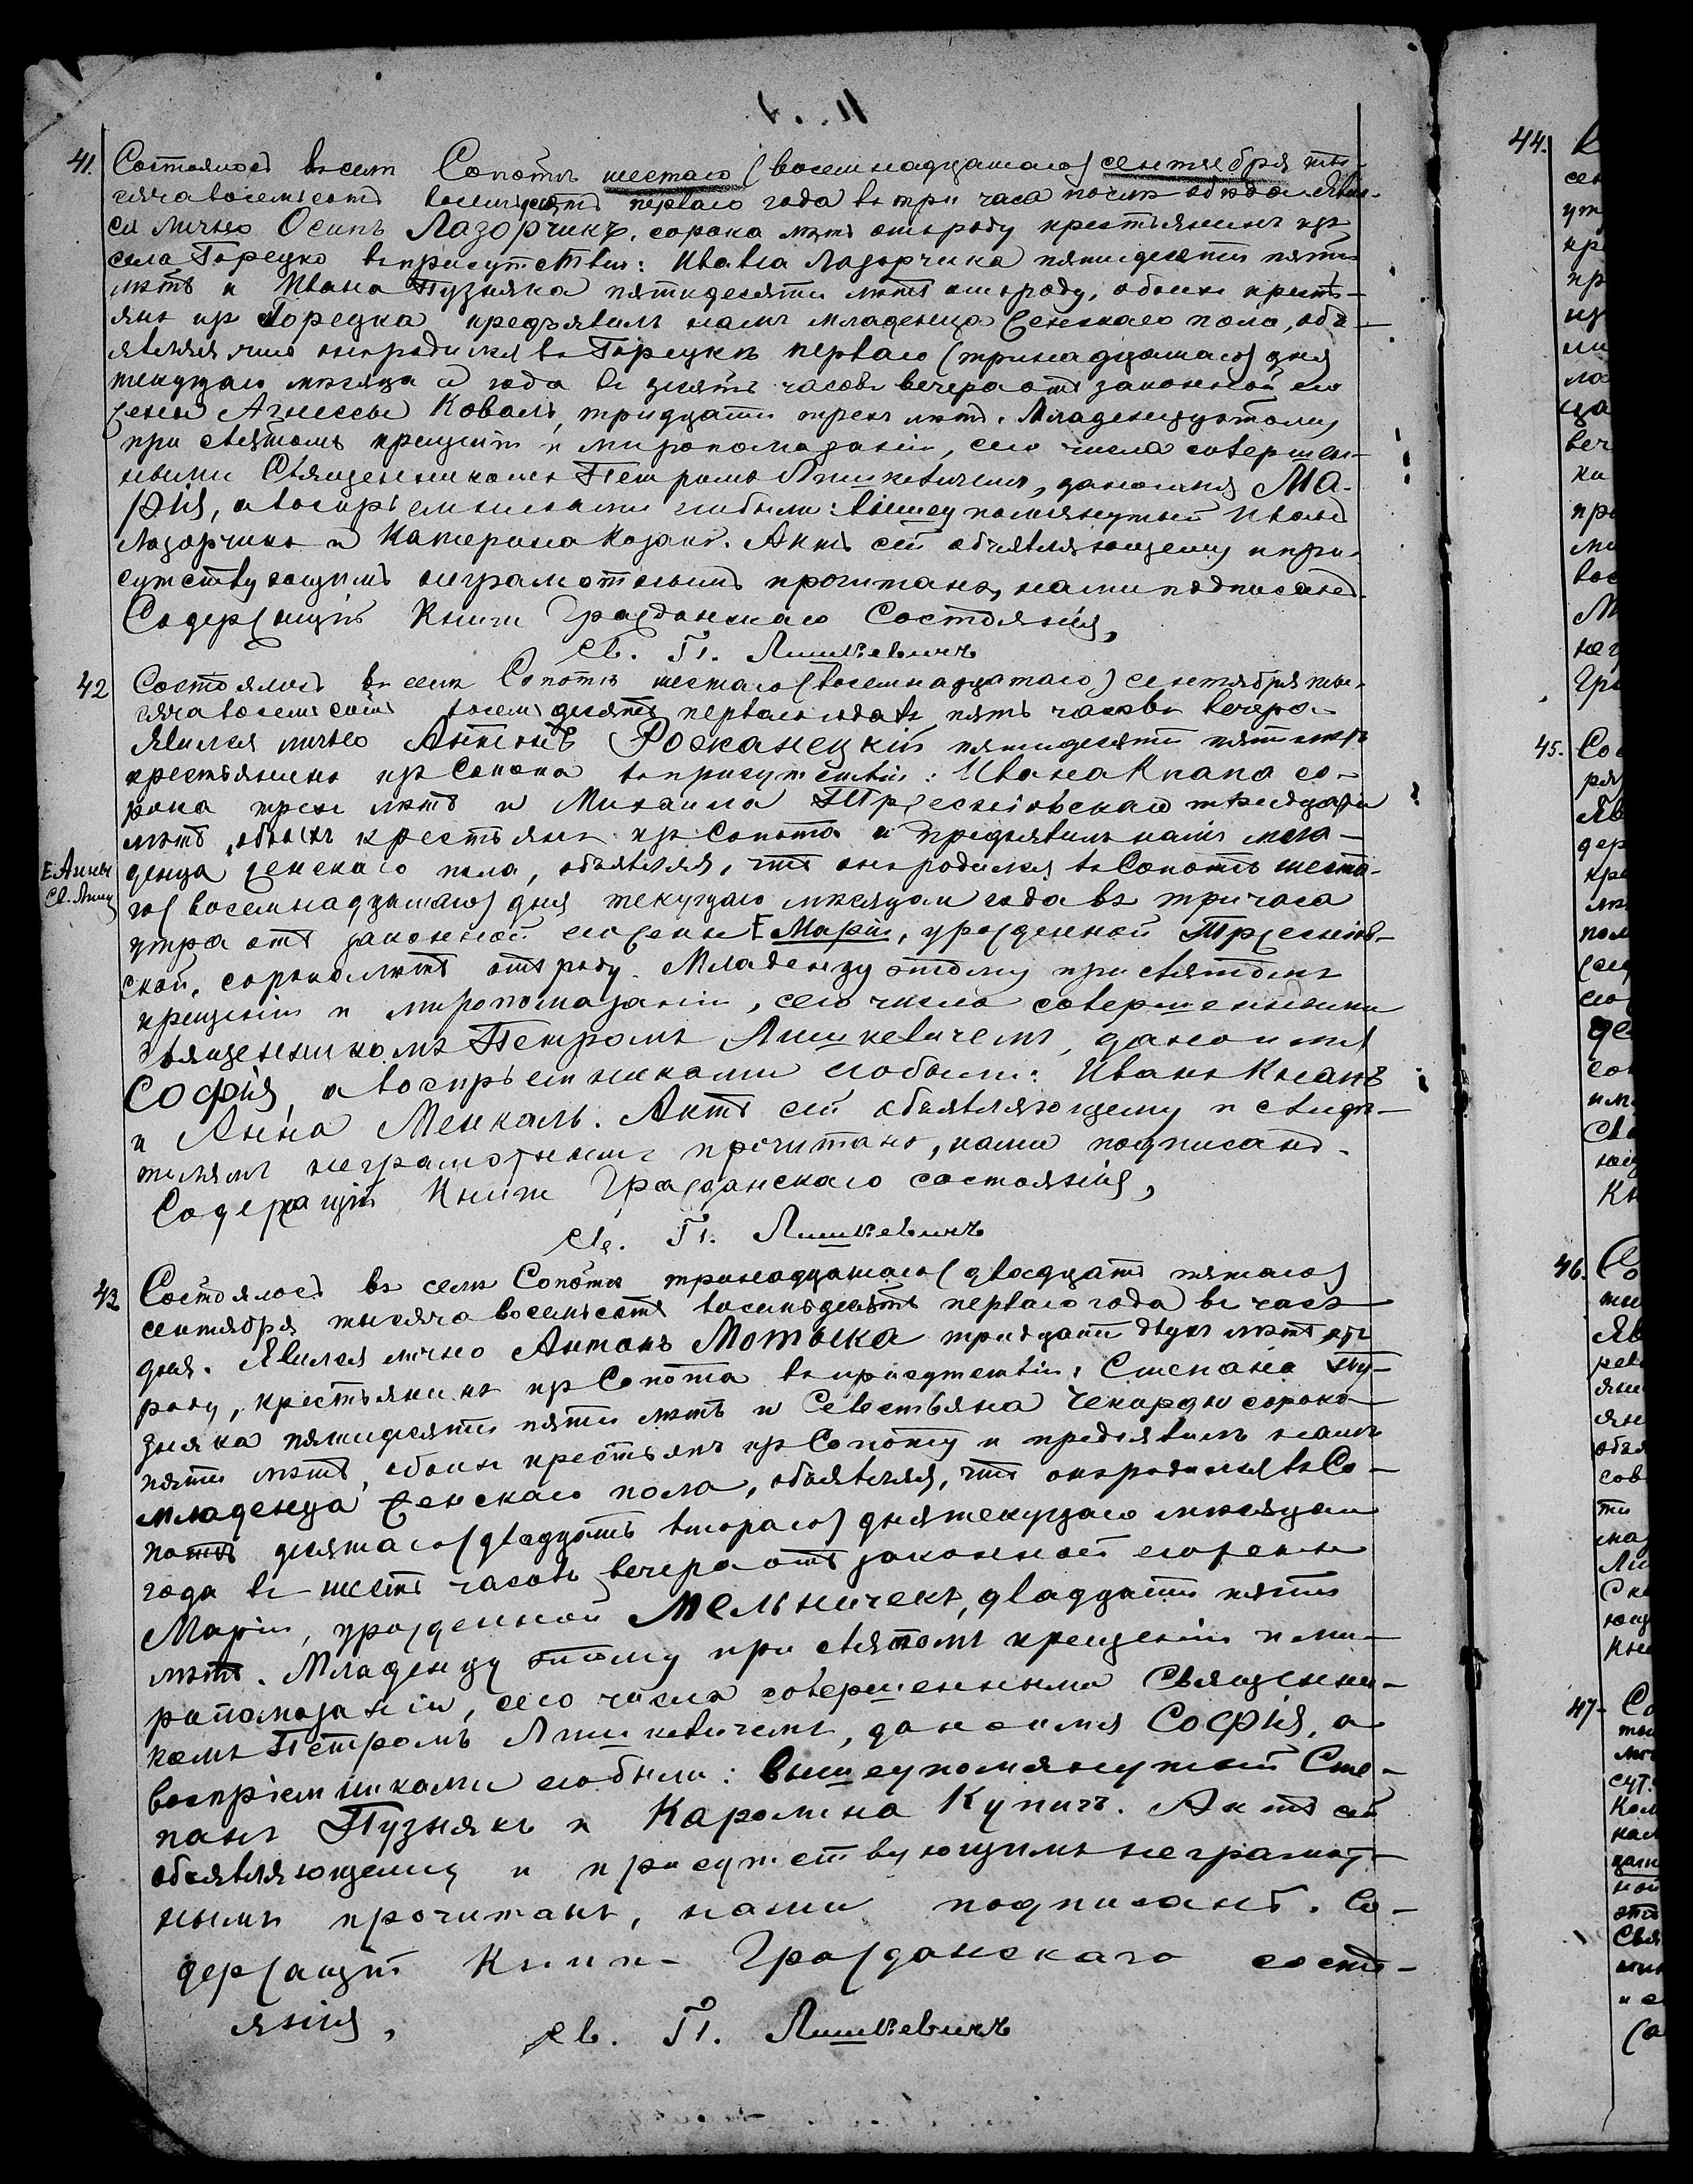 41. Состоялось въ селѣ Сопотѣ шестаго (восемнадцатаго) сентября ты-
сяча восемьсотъ восемьдесятъ перваго года въ три часа послѣ обѣда. Явил-
ся лично Осипъ Лазорчикъ, сорока лѣтъ отъ роду крестьянинъ изъ
села Горецко въ присутствіи: Ивана Лазорчика пятидесяти пяти
лѣтъ и Ивана Пузняка пятидесяти лѣтъ отъ роду, обоихъ кресть-
янъ изъ Горецка предъявилъ намъ младенца женскаго пола, объ-
являя что онъ родился въ Горецкѣ перваго (тринадцатаго) дня
текущаго мѣсяца и года въ десять часовъ вечера отъ законной его
жены Агнессы Коваль, тридцати трехъ лѣтъ. Младенцу этому
при святомъ крещеніи и миропомазаніи, сего числа совершен-
ными Священникомъ Петромъ Лишкевичемъ, дано имя Ма-
рія, а воспріемниками его были: вышеупомянутый Иванъ
Лазорчикъ и Катерина Козакъ. Актъ сей объявляющему и при-
сутствующимъ неграмотнымъ прочитанъ, нами подписанъ.
Содержащій Книги Гражданскаго Состоянія,
Св. П. Лишкевичъ
42 Состоялось въ селѣ Сопотѣ шестаго (восемнадцатаго) сентября ты-
сяча восемьсотъ восемьдесятъ перваго года въ пять часовъ вечера.
Явился лично Антонъ Росканецкій пятидесяти пяти лѣтъ
крестьянинъ изъ Сопота въ присутствіи: Ивана Кнапа со-
рока трехъ лѣтъ и Михаила Тржесніовскаго тридцати
лѣтъ, обоихъ крестьянъ изъ Сопота и предъявилъ намъ мла-
денца женскаго пола, объявляя, что онъ родился въ Сопотѣ шеста-
го (восемнадцатаго) дня текущаго мѣсяца и года въ три часа
Анны
Св. Лиш
утра отъ законной его жены Маріи, урожденной Тржесніов-
ской, сорока лѣтъ отъ роду. Младенцу этому при святомъ
крещеніи и миропомазаніи, сего числа совершенными
Священникомъ Петромъ Лишкевичемъ, дано имя
Софія, а воспріемниками его были: Иванъ Кнапъ
и Анна Менкаль. Актъ сей объявляющему и свидѣ-
телямъ неграмотнымъ прочитанъ, нами подписанъ.
Содержащій Книги Гражданскаго состоянія,
Св. П. Лишкевичъ
43 Состоялось въ селѣ Сопотѣ тринадцатаго (двадцать пятаго)
сентября тысяча восемьсотъ восемьдесятъ перваго года въ часъ
дня. Явился лично Антонъ Мотыка тридцати двухъ лѣтъ отъ
роду, крестьянинъ изъ Сопота въ присутствіи: Степана Пу-
зняка пятидесяти пяти лѣтъ и Севестьяна Чекирды сорока
пяти лѣтъ, обоихъ крестьянъ изъ Сопоту и предъявилъ намъ
младенца женскаго пола, объявляя, что онъ родился въ Со-
потѣ десятаго (двадцать втораго) дня текущаго мѣсяца и
года въ шесть часовъ вечера отъ законной его жены
Маріи, урожденной Мельничекъ, двадцати пяти
лѣтъ. Младенцу этому при святомъ крещеніи и ми-
ропомазаніи, сего числа совершенными Священни-
комъ Петромъ Лишкевичемъ, дано имя Софія, а
воспріемниками его были: вышеупомянутый Сте-
панъ Пузнякъ и Каролина Купичъ. Актъ сей
объявляющему и присутствующимъ неграмот-
нымъ прочитанъ, нами подписанъ. Со-
держащій Книги Гражданскаго состо-
янія, Св. П. Лишкевичъ
44.
45.
46.
47.